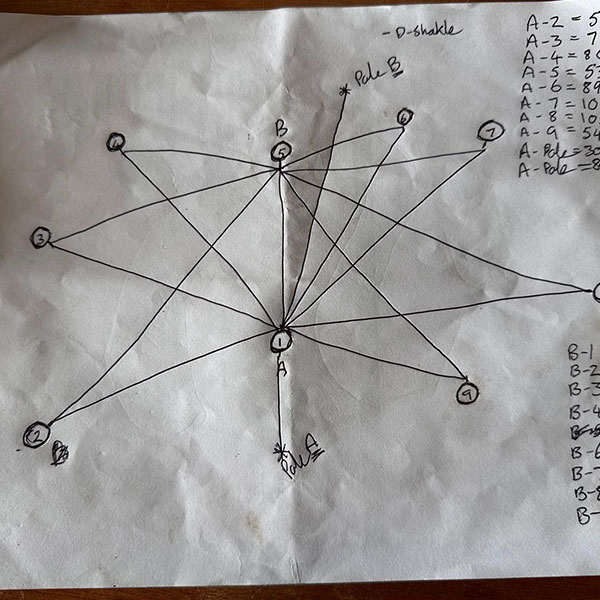 - D-shakle
Pole B
B
4
5
6
7
3
1
A
2
9
Pole A
A-2 = 5
A-3 = 7
A-4 = 80
A-5 = 53
A-6 = 89
A-7 = 10
A-8 = 10
A-9 = 54
A-Pole = 30
A-Pole = 8
B-1
B-2
B-3
B-4
B-6
B-7
B-8
B-